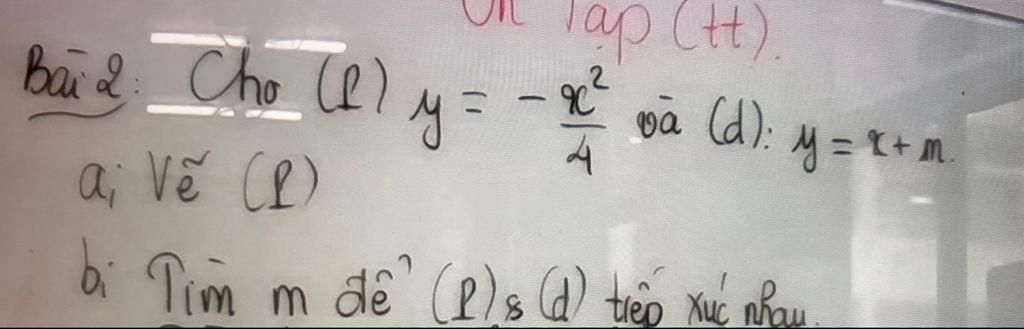 Ôn Tập (tt).
Bài 2: Cho (P) y = -x²/4 và (d): y = x + m.
a; Vẽ (P)
b; Tìm m để (P) & (d) tiếp xúc nhau.